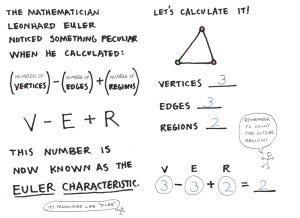 THE MATHEMATICIAN
LEONHARD EULER
NOTICED SOMETHING PECULIAR
WHEN HE CALCULATED:
(NUMBER OF VERTICES) - (NUMBER OF EDGES) + (NUMBER OF REGIONS)
V - E + R
THIS NUMBER IS
NOW KNOWN AS THE
EULER CHARACTERISTIC.
IT'S PRONOUNCED LIKE "OILER"
LET'S CALCULATE IT!
VERTICES 3
EDGES 3
REGIONS 2
REMEMBER
TO COUNT
THE OUTSIDE
REGION!
V E R
3 - 3 + 2 = 2